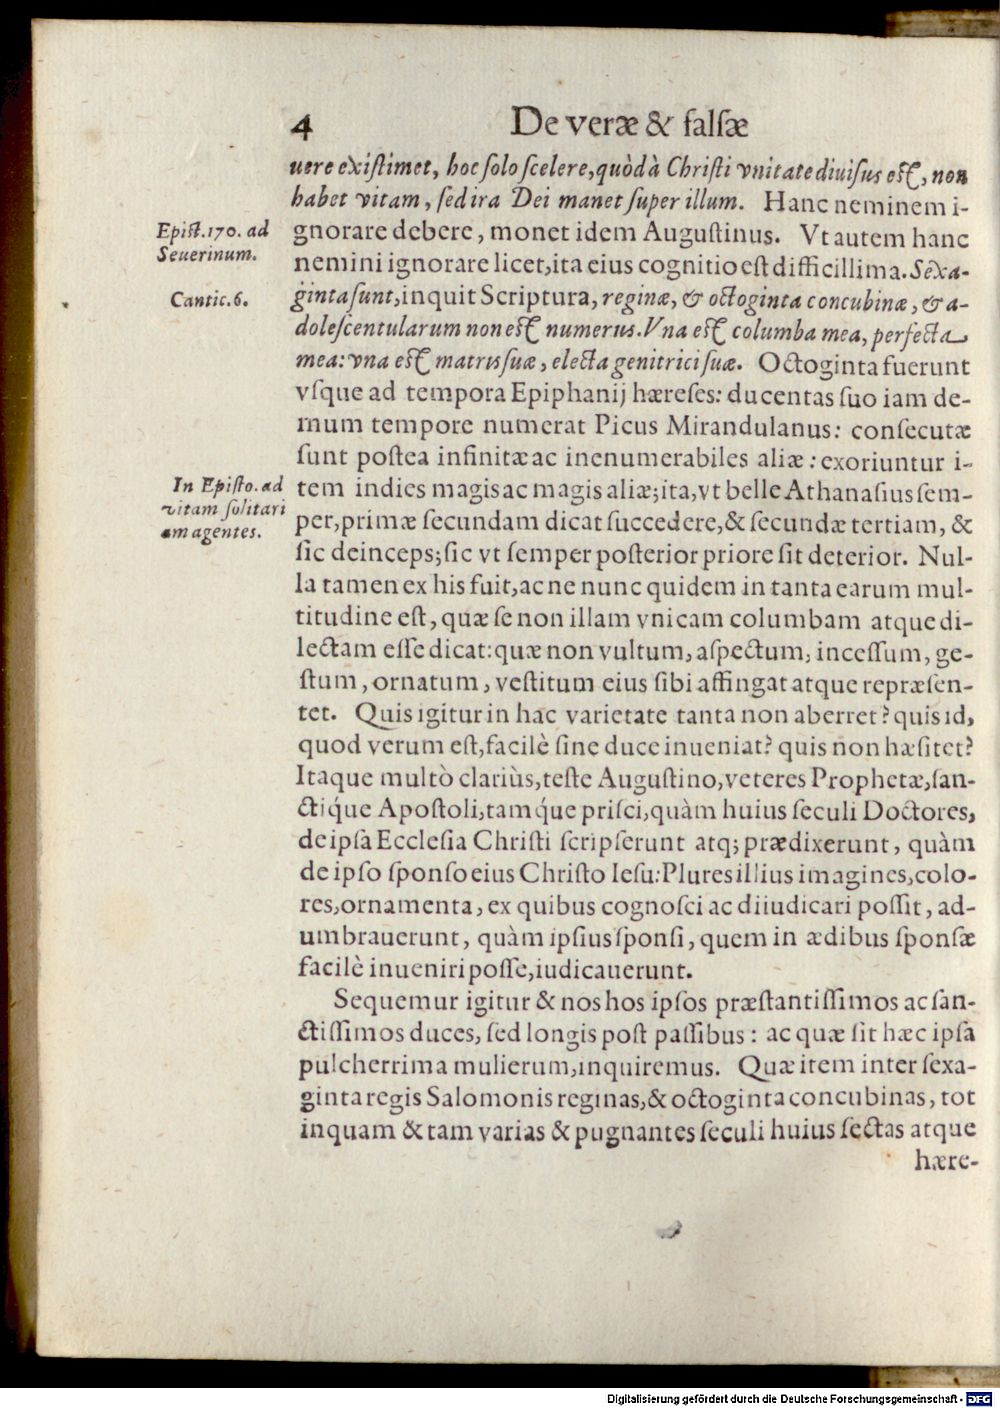 4 De veræ & falsæ
uere existimet, hoc solo scelere, quòd à Christi vnitate diuisus est, non
habet vitam, sed ira Dei manet super illum. Hanc neminem i-
Epist. 170. ad
Seuerinum.
gnorare debere, monet idem Augustinus. Vt autem hanc
nemini ignorare licet, ita eius cognitio est difficillima. Sexa-
Cantic. 6.
ginta sunt, inquit Scriptura, reginæ, & octoginta concubinæ, & a-
dolescentularum non est numerus. Vna est columba mea, perfecta
mea: vna est matris suæ, electa genitrici suæ. Octoginta fuerunt
vsque ad tempora Epiphanij hæreses: ducentas suo iam de-
mum tempore numerat Picus Mirandulanus: consecutæ
sunt postea infinitæ ac inenumerabiles aliæ: exoriuntur i-
In Episto. ad
vitam solitari
am agentes.
tem indies magis ac magis aliæ; ita, vt belle Athanasius sem-
per, primæ secundam dicat succedere, & secundæ tertiam, &
sic deinceps; sic vt semper posterior priore sit deterior. Nul-
la tamen ex his fuit, ac ne nunc quidem in tanta earum mul-
titudine est, quæ se non illam vnicam columbam atque di-
lectam esse dicat: quæ non vultum, aspectum, incessum, ge-
stum, ornatum, vestitum eius sibi affingat atque repræsen-
tet. Quis igitur in hac varietate tanta non aberret? quis id,
quod verum est, facilè sine duce inueniat? quis non hæsitet?
Itaque multò clariùs, teste Augustino, veteres Prophetæ, san-
ctiq́ue Apostoli, tamq́ue prisci, quàm huius seculi Doctores,
de ipsa Ecclesia Christi scripserunt atq; prædixerunt, quàm
de ipso sponso eius Christo Iesu: Plures illius imagines, colo-
res, ornamenta, ex quibus cognosci ac diiudicari possit, ad-
umbrauerunt, quàm ipsius sponsi, quem in ædibus sponsæ
facilè inueniri posse, iudicauerunt.
Sequemur igitur & nos hos ipsos præstantissimos ac san-
ctissimos duces, sed longis post passibus: ac quæ sit hæc ipsa
pulcherrima mulierum, inquiremus. Quæ item inter sexa-
ginta regis Salomonis reginas, & octoginta concubinas, tot
inquam & tam varias & pugnantes seculi huius sectas atque
hære-
Digitalisierung gefördert durch die Deutsche Forschungsgemeinschaft - DFG